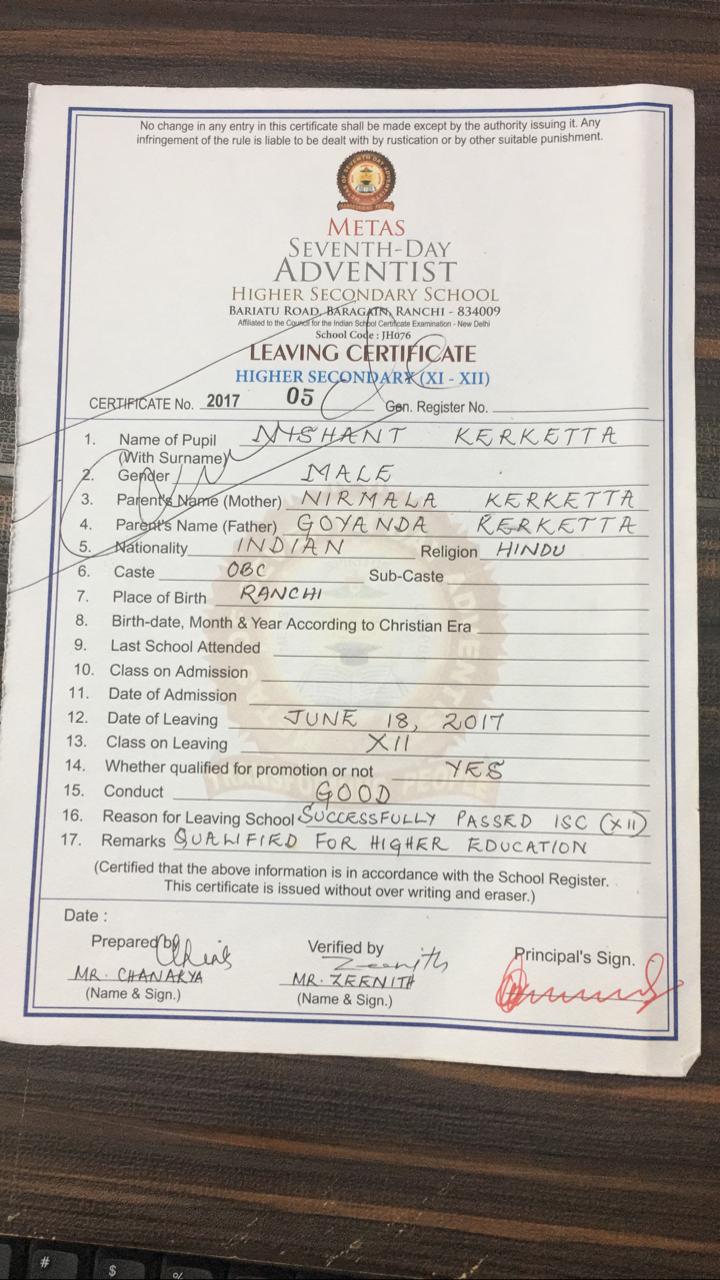 No change in any entry in this certificate shall be made except by the authority issuing it. Any
infringement of the rule is liable to be dealt with by rustication or by other suitable punishment.
METAS
SEVENTH-DAY
ADVENTIST
HIGHER SECONDARY SCHOOL
BARIATU ROAD, BARAGAIN, RANCHI - 834009
Affiliated to the Council for the Indian School Certificate Examination - New Delhi
School Code : JH076
LEAVING CERTIFICATE
HIGHER SECONDARY (XI - XII)
CERTIFICATE No. 2017 05 Gen. Register No.
1. Name of Pupil NISHANT KERKETTA
(With Surname)
2. Gender MALE
3. Parent's Name (Mother) NIRMALA KERKETTA
4. Parent's Name (Father) GOYANDA KERKETTA
5. Nationality INDIAN Religion HINDU
6. Caste OBC Sub-Caste
7. Place of Birth RANCHI
8. Birth-date, Month & Year According to Christian Era
9. Last School Attended
10. Class on Admission
11. Date of Admission
12. Date of Leaving JUNE 18, 2017
13. Class on Leaving XII
14. Whether qualified for promotion or not YES
15. Conduct GOOD
16. Reason for Leaving School SUCCESSFULLY PASSED ISC (XII)
17. Remarks QUALIFIED FOR HIGHER EDUCATION
(Certified that the above information is in accordance with the School Register.
This certificate is issued without over writing and eraser.)
Date :
Prepared by Verified by Principal's Sign.
Zeenith
MR. CHANARYA MR. ZEENITH
(Name & Sign.) (Name & Sign.)
# $ %